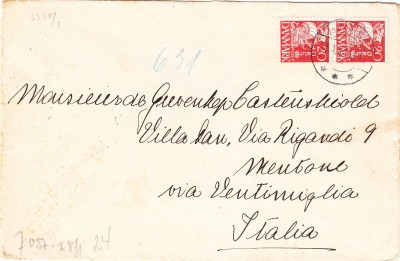 631
DANMARK 20
DANMARK 20
Monsieur de Grevenkop Castenskiold
Villa San, Via Rigandi 9
Mentone
via Ventimiglia
Italia